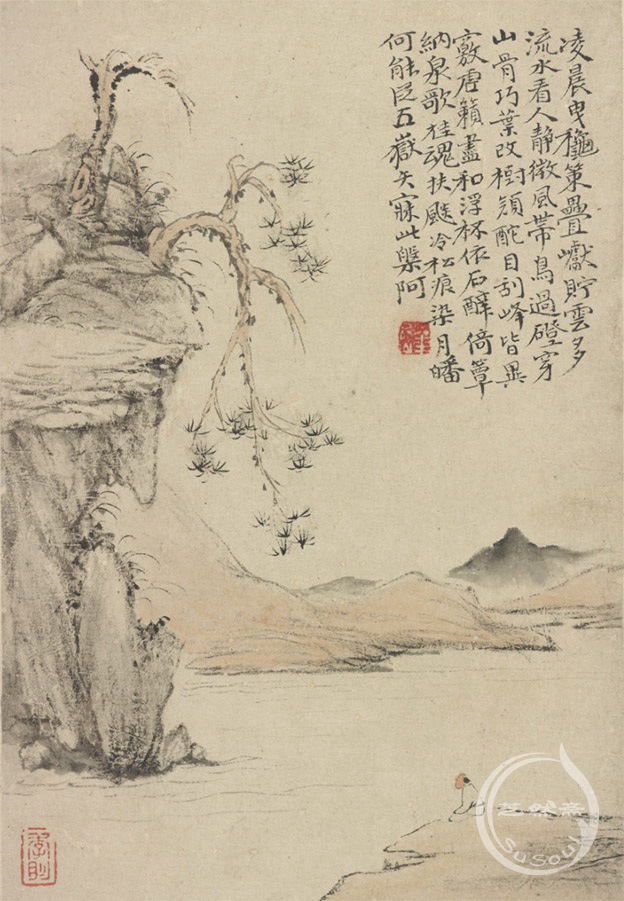 凌晨曳穐策疊巘貯雲多
流水看人静微風帶鳥過磴穿
山骨巧葉改樹頹酡目刮峰皆異
竅虗籟盡和浮杯依石醉倚簟
納泉歌狂魂扶颷冷松痕染月皤
何能泛五嶽矢寐此槃阿
SuSouL